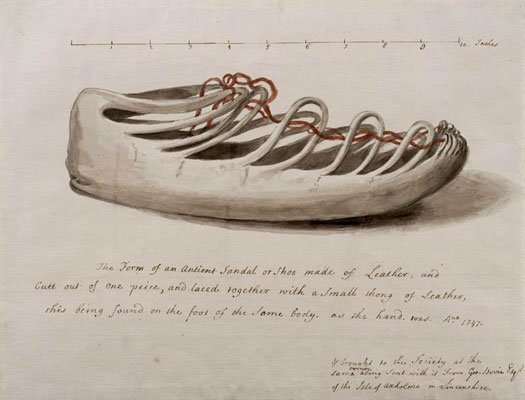 1 2 3 4 5 6 7 8 9 10. Inches
The Form of an Antient Sandal or Shoe made of Leather, and
Cutt out of one peice, and laced together with a Small thong of Leather,
this being found on the foot of the Same body. as the hand. was. Ano. 1747.
brought to the Society at the
Same along Sent with it From Geo: Stovin Esqr
of the Isle of Axholme in Lincolnshire